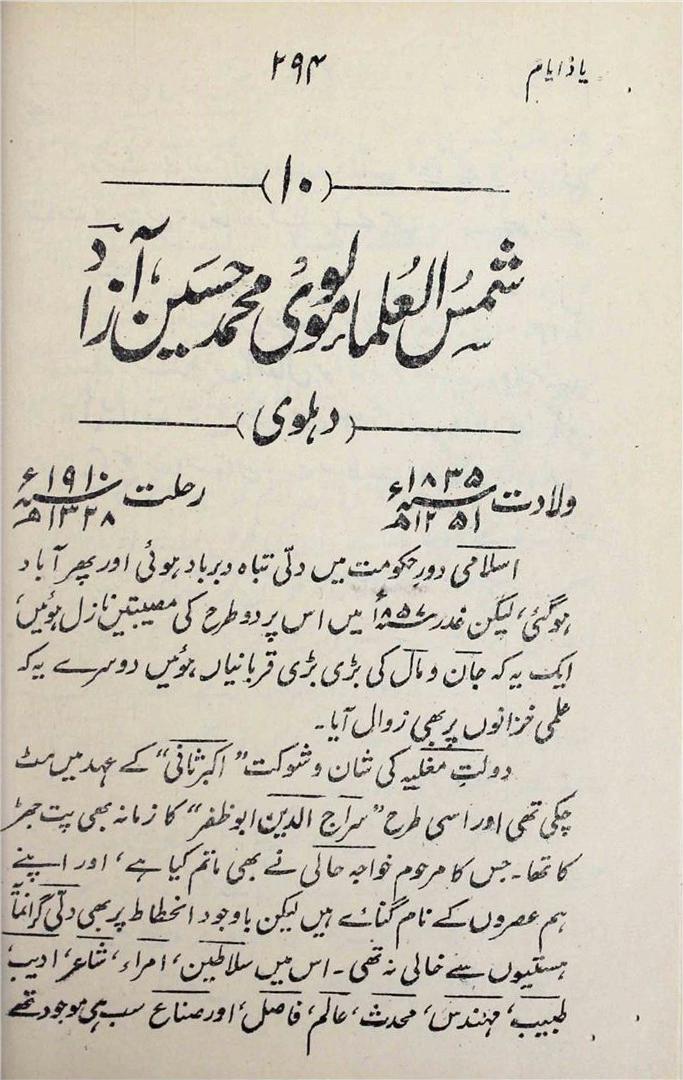 یاد ایام
۲۹۴
(۱۰)
شمسُ العُلما مولوی محمد حسین آزاد
(دہلوی)
ولادت ۱۸۳۵ء ۱۲۵۱ھ رحلت ۱۹۱۰ء ۱۳۲۸ھ
اسلامی دورِ حکومت میں دلّی تباہ و برباد ہوئی اور پھر آباد
ہوگئی، لیکن غدر ۱۸۵۷ء میں اس پر دو طرح کی مصیبتیں نازل ہوئیں،
ایک یہ کہ جان و مال کی بڑی بڑی قربانیاں ہوئیں دوسرے یہ کہ
علمی خزانوں پر بھی زوال آیا۔
دولتِ مغلیہ کی شان و شوکت "اکبر ثانی" کے عہد میں مٹ
چکی تھی اور اسی طرح "سراج الدین ابو ظفر" کا زمانہ بھی پت جھڑ
کا تھا۔ جس کا مرحوم خواجہ حالی نے بھی ماتم کیا ہے، اور اپنے
ہم عصروں کے نام گنائے ہیں لیکن باوجود انحطاط پر بھی دلّی گرانمآ
ہستیوں سے خالی نہ تھی۔ اس میں سلاطین، امراء، شاعر، ادیب،
طبیب، مہندس، محدث، عالم، فاضل، اور صناع سب ہی موجود تھے